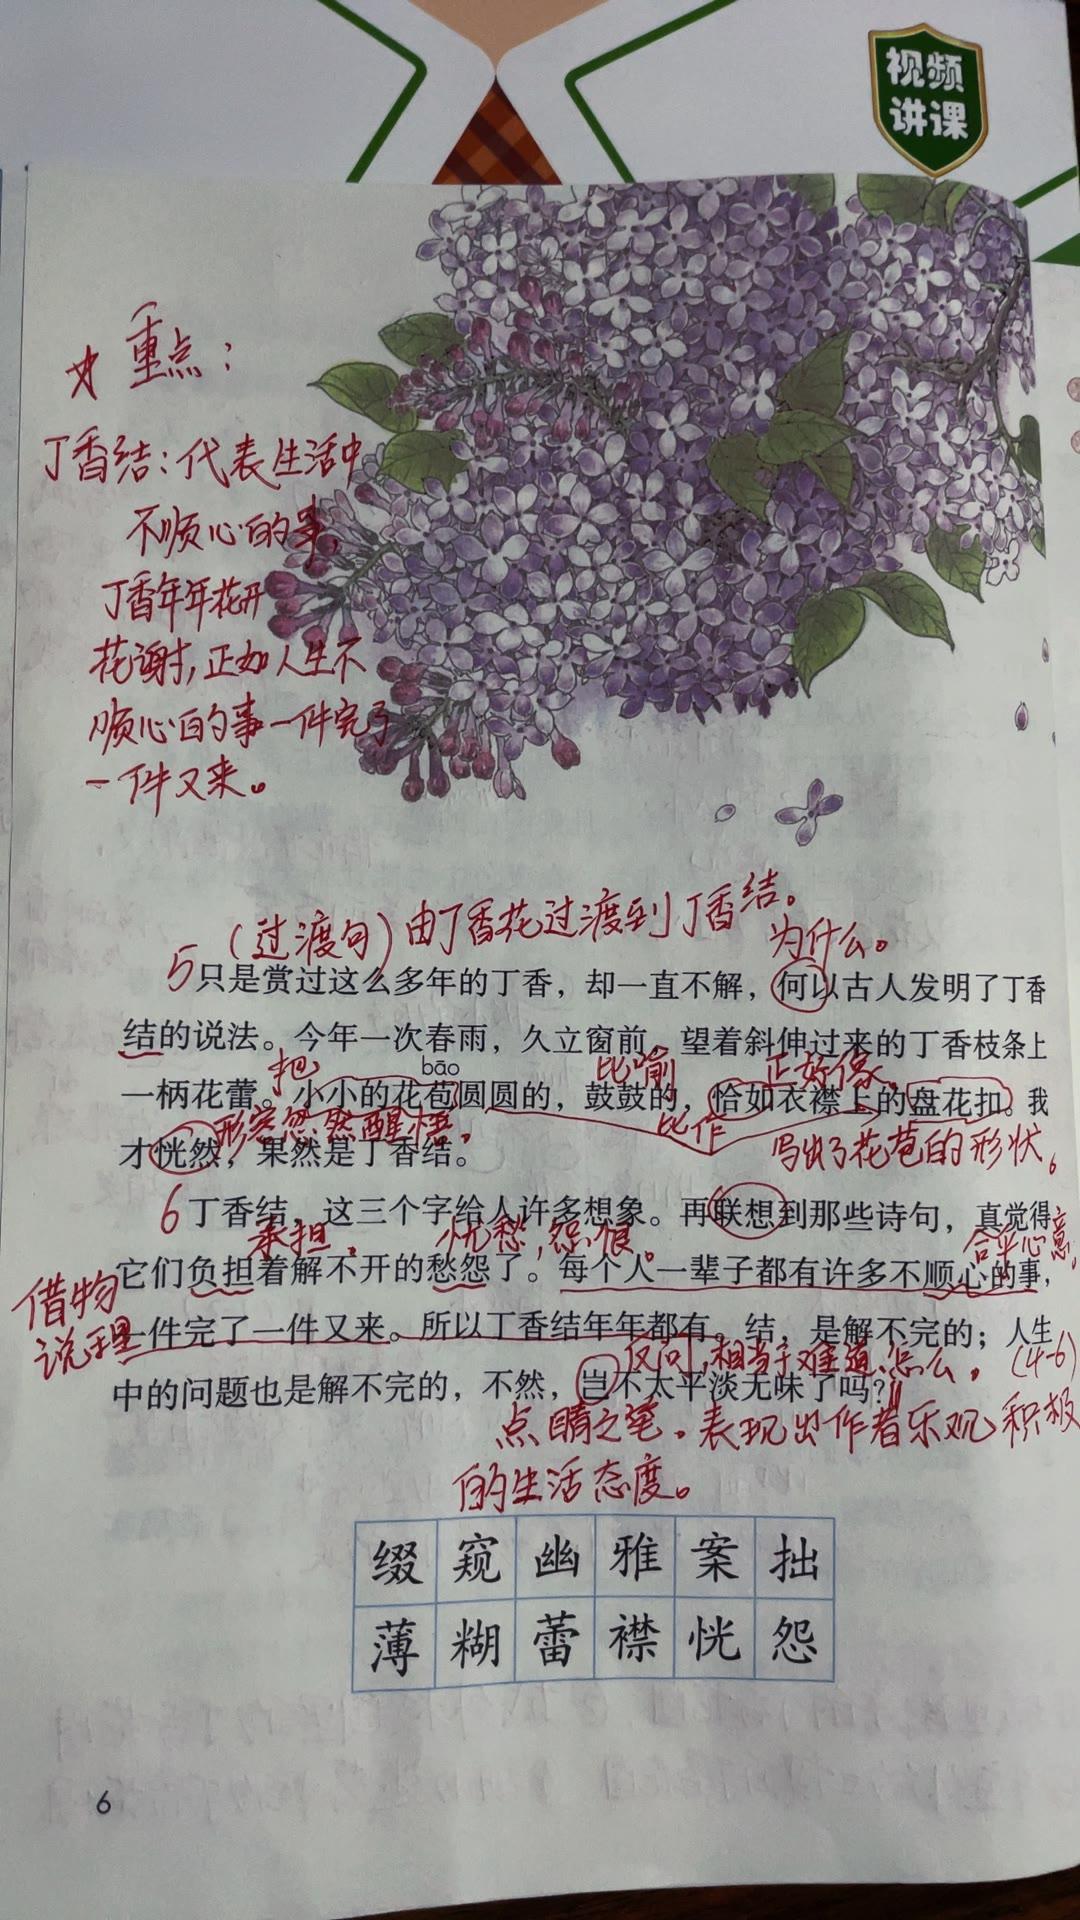 视频
讲课
☆重点：
丁香结：代表生活中
不顺心的事，
丁香年年花开
花谢，正如人生不
顺心的事一件完了
一件又来。
（过渡句）由丁香花过渡到丁香结。
为什么。
5只是赏过这么多年的丁香，却一直不解，何以古人发明了丁香
结的说法。今年一次春雨，久立窗前，望着斜伸过来的丁香枝条上
把 bāo 比喻 正好像。
一柄花蕾。小小的花苞圆圆的，鼓鼓的，恰如衣襟上的盘花扣。我
形容忽然醒悟。 比作 写出了花苞的形状。
才恍然，果然是丁香结。
6丁香结，这三个字给人许多想象。再联想到那些诗句，真觉得
承担。 忧愁，怨恨。 合乎心意。
它们负担着解不开的愁怨了。每个人一辈子都有许多不顺心的事，
借物
说理
一件完了一件又来。所以丁香结年年都有。结，是解不完的；人生
反问，相当于难道，怎么。 (4-6)
中的问题也是解不完的，不然，岂不太平淡无味了吗？
点睛之笔。表现出作者乐观积极
的生活态度。
缀 窥 幽 雅 案 拙
薄 糊 蕾 襟 恍 怨
6